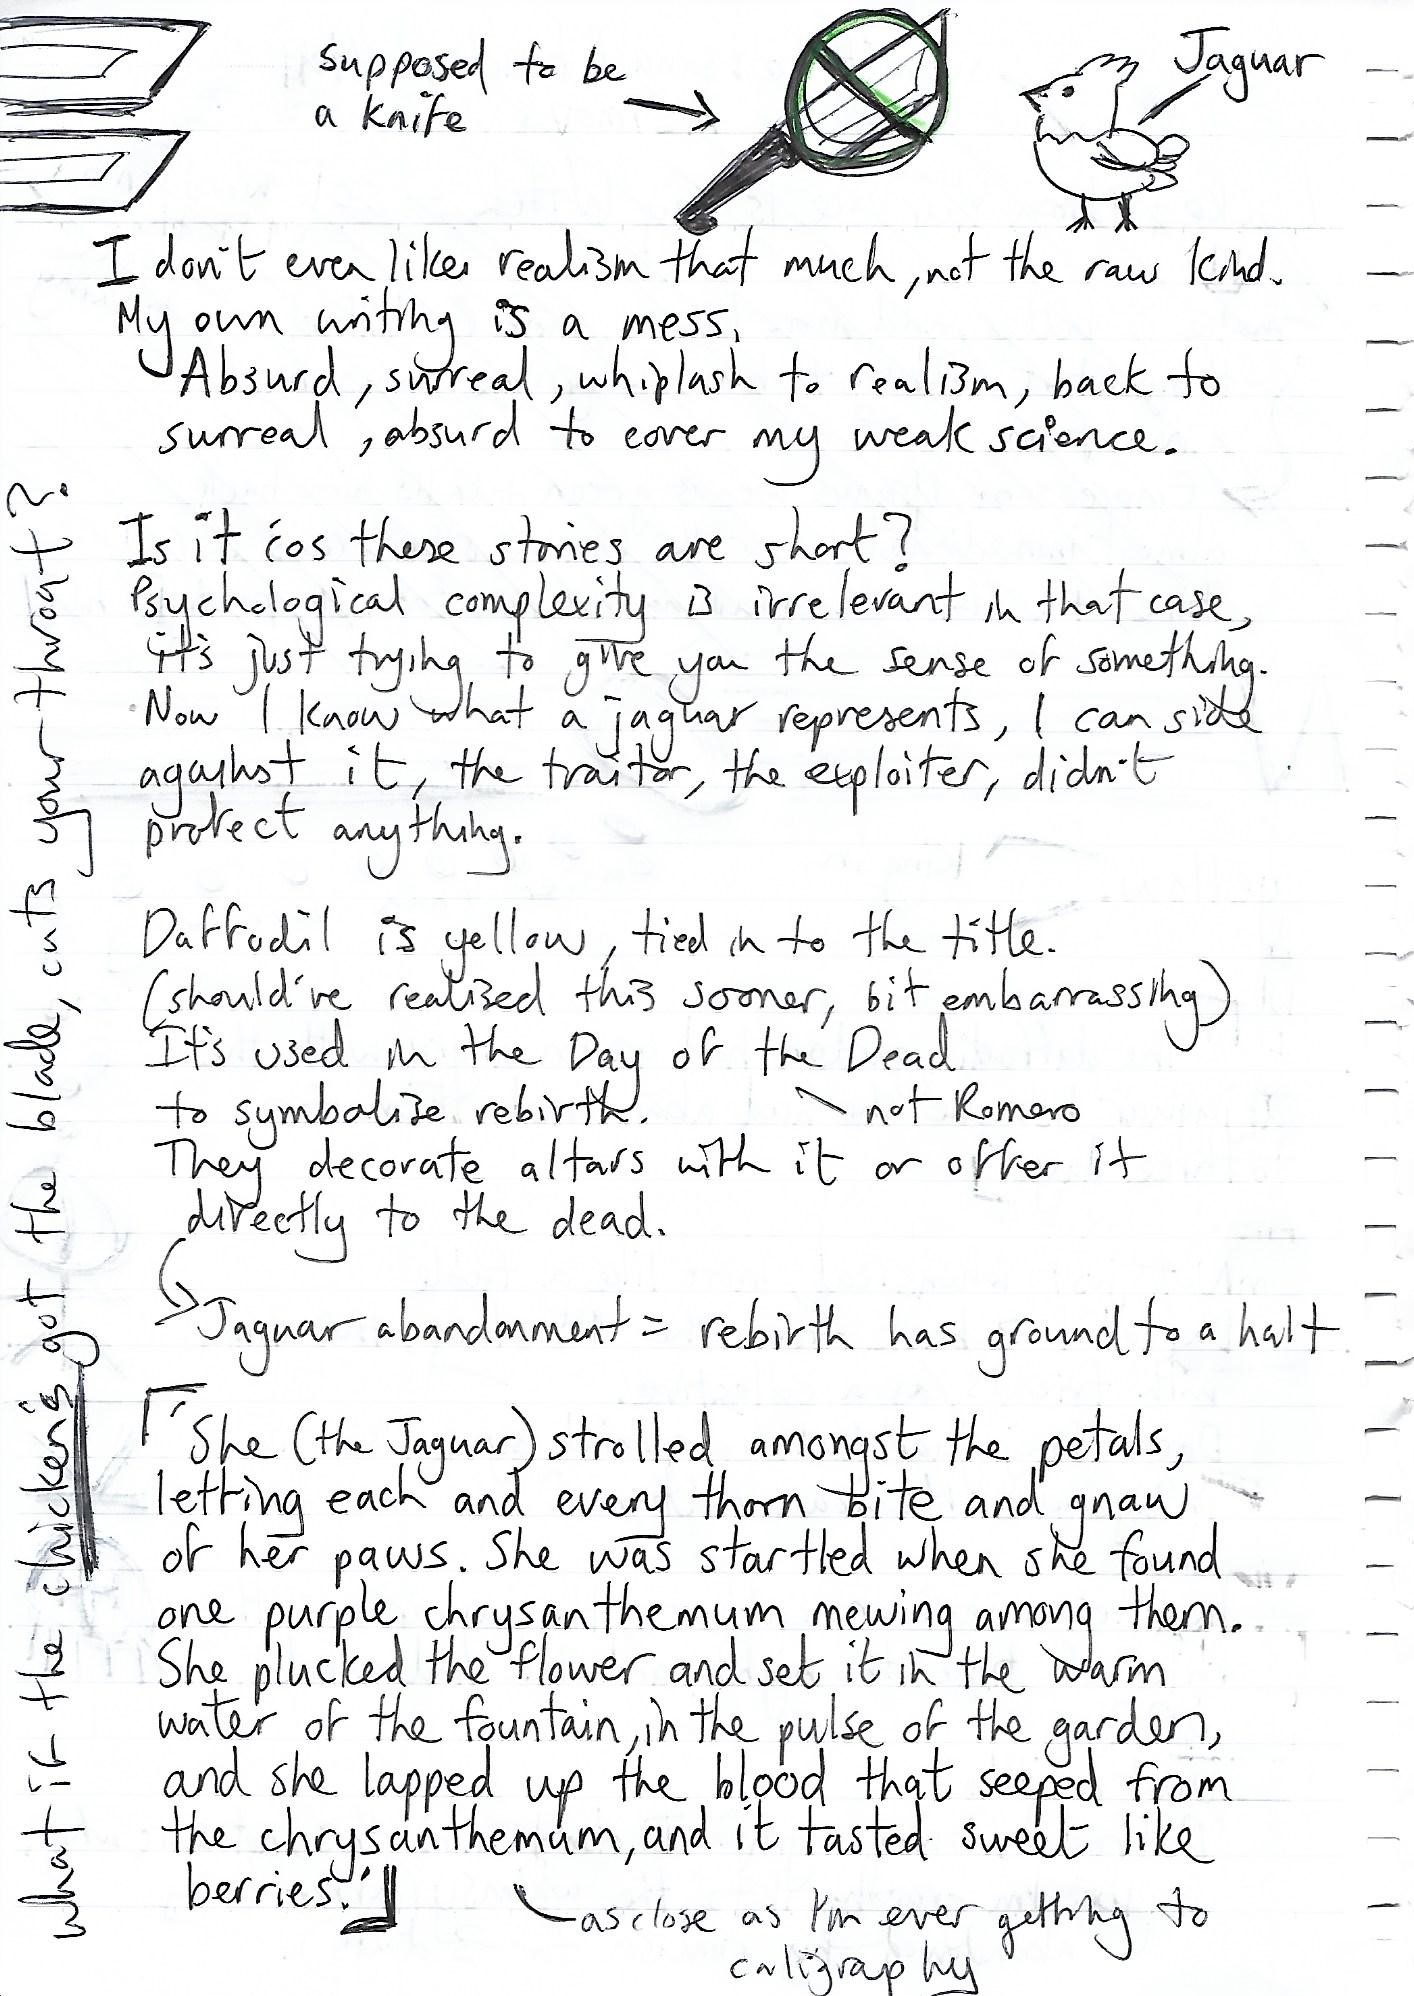 supposed to be
a knife
Jaguar
I don't even like realism that much, not the raw kind.
My own writing is a mess.
Absurd, surreal, whiplash to realism, back to
surreal, absurd to cover my weak science.
Is it cos these stories are short?
Psychological complexity is irrelevant in that case,
it's just trying to give you the sense of something.
Now I know what a jaguar represents, I can side
against it, the traitor, the exploiter, didn't
protect anything.
Daffodil is yellow, tied in to the title.
(should've realised this sooner, bit embarrassing)
It's used in the Day of the Dead
to symbolise rebirth.
not Romero
They decorate altars with it or offer it
directly to the dead.
Jaguar abandonment = rebirth has ground to a halt
'She (the Jaguar) strolled amongst the petals,
letting each and every thorn bite and gnaw
of her paws. She was startled when she found
one purple chrysanthemum mewing among them.
She plucked the flower and set it in the warm
water of the fountain, in the pulse of the garden,
and she lapped up the blood that seeped from
the chrysanthemum, and it tasted sweet like
berries.'
as close as I'm ever getting to
caligraphy
What if the chickens got the blade, cuts your throat?